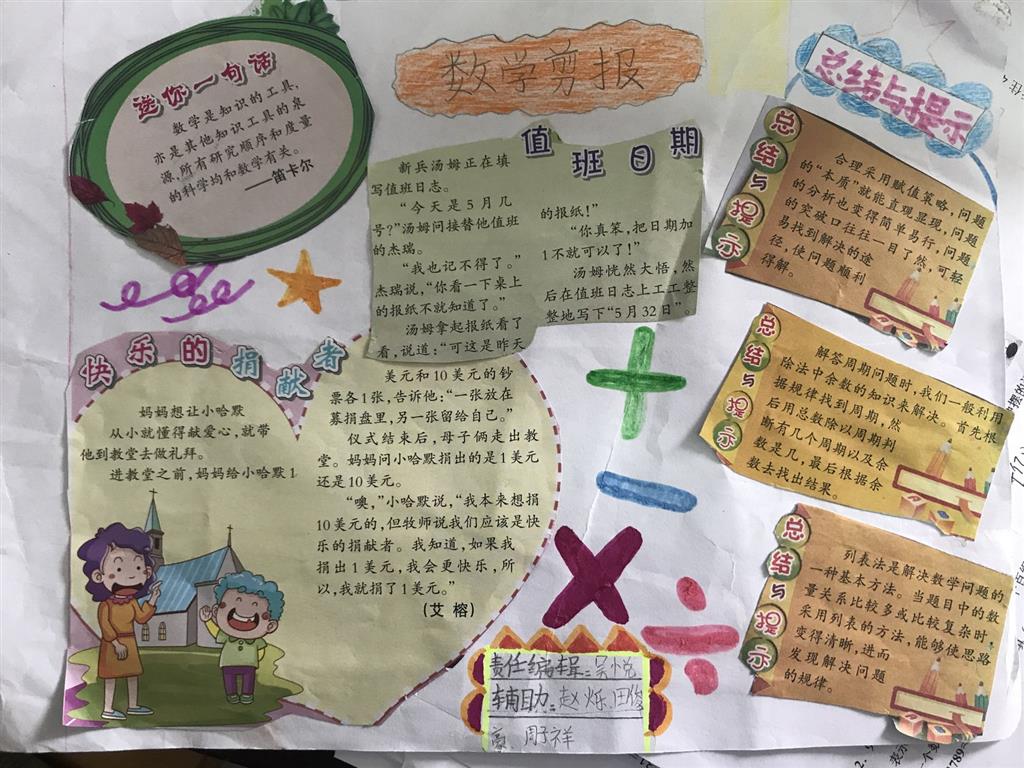 数学剪报
送你一句话
数学是知识的工具,
亦是其他知识工具的泉
源,所有研究顺序和度量
的科学均和数学有关。
——笛卡尔
值班日期
新兵汤姆正在填
写值班日志。
“今天是5月几
号?”汤姆问接替他值班
的杰瑞。
“我也记不得了。”
杰瑞说,“你看一下桌上
的报纸不就知道了。”
汤姆拿起报纸看了
看,说道:“可这是昨天
的报纸!”
“你真笨,把日期加
1不就可以了!”
汤姆恍然大悟,然
后在值班日志上工工整
整地写下“5月32日”。
快乐的捐献者
妈妈想让小哈默
从小就懂得献爱心,就带
他到教堂去做礼拜。
进教堂之前,妈妈给小哈默1
美元和10美元的钞
票各1张,告诉他:“一张放在
募捐盘里,另一张留给自己。”
仪式结束后,母子俩走出教
堂。妈妈问小哈默捐出的是1美元
还是10美元。
“噢,”小哈默说,“我本来想捐
10美元的,但牧师说我们应该是快
乐的捐献者。我知道,如果我
捐出1美元,我会更快乐,所
以,我就捐了1美元。”
(艾榕)
总结与提示
总结与提示
合理采用赋值策略,问题
的“本质”就能直观显现,问题
的分析也变得简单易行,问题
的突破口往往一目了然,可轻
易找到解决的途
径,使问题顺利
得解。
总结与提示
解答周期问题时,我们一般利用
除法中余数的知识来解决。首先根
据规律找到周期,然
后用总数除以周期判
断有几个周期以及余
数是几,最后根据余
数去找出结果。
总结与提示
列表法是解决数学问题的
一种基本方法。当题目中的数
量关系比较多或比较复杂时,
采用列表的方法,能够使思路
变得清晰,进而
发现解决问题
的规律。
责任编辑:吴悦
辅助:赵烁,田俊
豪 周子祥